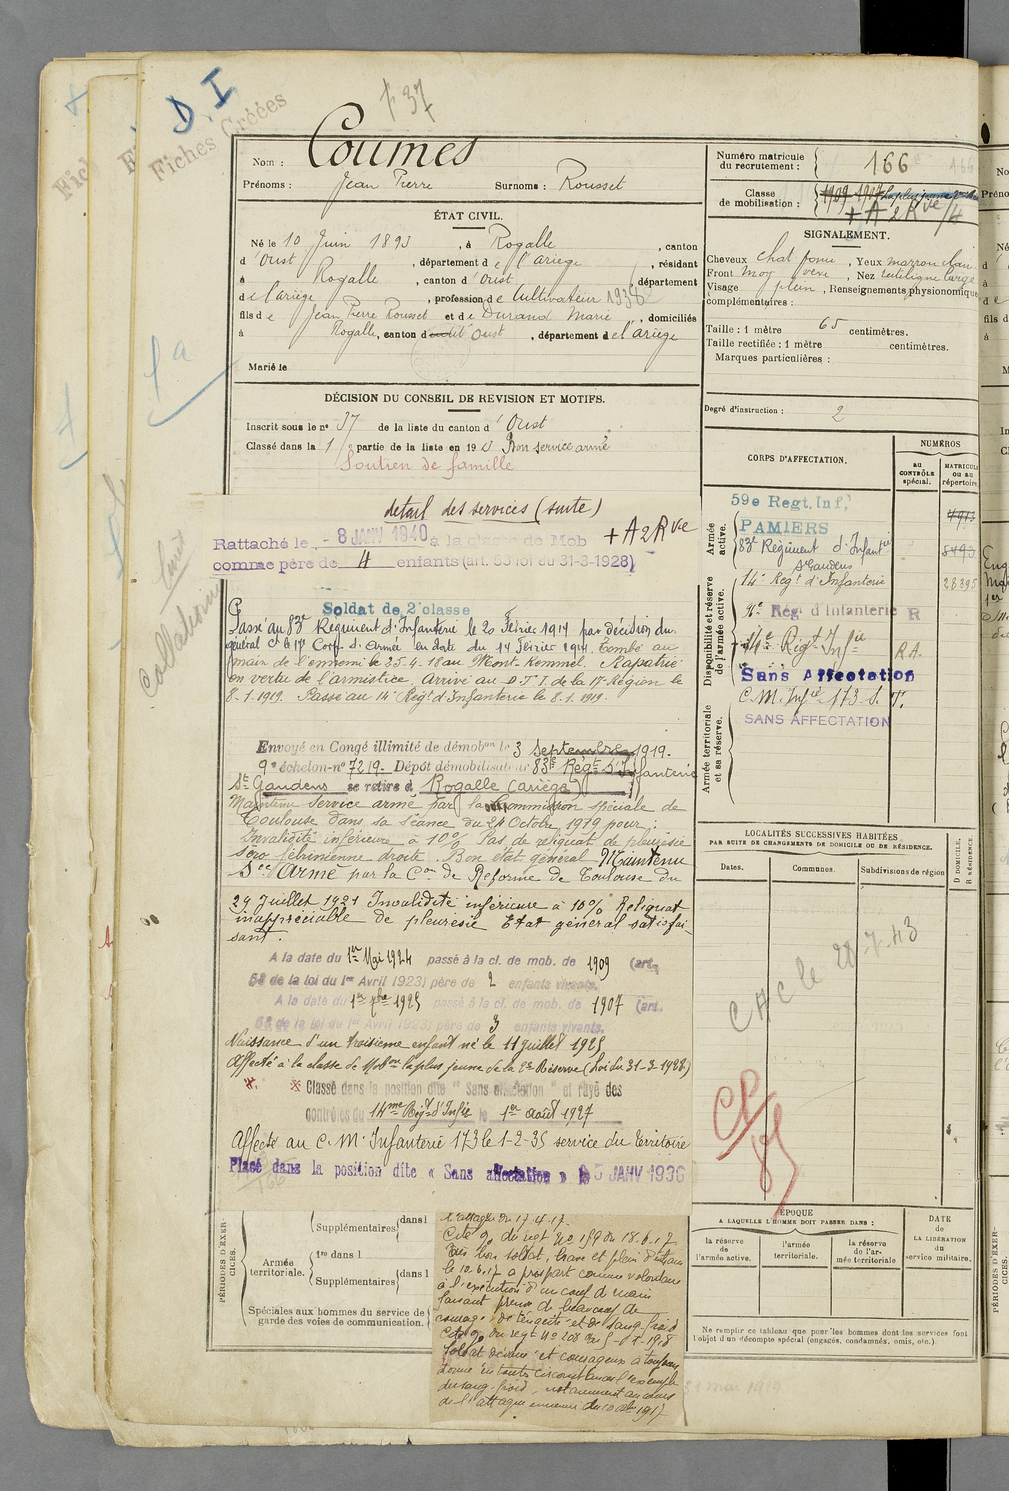 D.I
Fiches Créées
1 37
Nom : Coumes
Prénoms : Jean Pierre Surnoms : Rousset
ÉTAT CIVIL.
Né le 10 Juin 1893, à Rogalle, canton
d'Oust, département de l'Ariège, résidant
à Rogalle, canton d'Oust, département
de l'Ariège, profession de Cultivateur 1938
fils de Jean Pierre Rousset et de Durand Marie, domiciliés
à Rogalle, canton d'Oust, département de l'Ariège
Marié le
DÉCISION DU CONSEIL DE REVISION ET MOTIFS.
Inscrit sous le n° 37 de la liste du canton d'Oust
Classé dans la 1 partie de la liste en 19 Bon service armé
Soutien de famille
détail des services (suite)
Rattaché le - 8 JANV 1940 à la classe de Mob + A 2 Rve
comme père de 4 enfants (art. 58 loi du 31-3-1928)
Soldat de 2e classe
Passé au 83e Régiment d'Infanterie le 20 Février 1914 par décision du
général Ct le 17e Corps d'Armée en date du 14 février 1914. Tombé au
main de l'ennemi le 25.4.18 au Mont-Kemmel. Rapatrié
en vertu de l'armistice. Arrivé au D.T.I. de la 17e Région le
8.1.1919. Passé au 14e Régt d'Infanterie le 8.1.1919.
Envoyé en Congé illimité de démobon le 3 Septembre 1919.
9e échelon-n° 7219- Dépôt démobilisateur 83e Régt d'Infanterie
St Gaudens se retire à Rogalle (Ariège)
Maintenu service armé par la Commission spéciale de
Toulouse dans sa séance du 24 Octobre 1919 pour :
Invalidité inférieure à 10% Pas de reliquat de pleurésie
séro fibrinienne droite. Bon état général Maintenu
See Armé par la Con de Réforme de Toulouse du
29 Juillet 1921 Invalidité inférieure à 10% Reliquat
inappréciable de pleurésie Etat général satisfai-
sant.
A la date du 1er Mai 1924 passé à la cl. de mob. de 1909 (art.
58 de la loi du 1er Avril 1923) père de 2 enfants vivants.
A la date du 1er 7bre 1925 passé à la cl. de mob. de 1907 (art.
58 de la loi du 1er Avril 1923) père de 3 enfants vivants.
Naissance d'un troisième enfant né le 11 juillet 1925
Affecté à la classe de Mobon la plus jeune de la 2e Réserve (Loi du 31-3-1928)
※ ※ Classé dans la position dite "Sans affectation" et rayé des
contrôles du 14me Régt d'Infie le 1er Août 1927
Affecté au C.M. Infanterie 173 le 1-2-35 service du territoire
Placé dans la position dite « Sans affectation » le 5 JANV 1936
PÉRIODES D'EXERCICES.
Supplémentaires dans l
Armée territoriale.
1re dans l
Supplémentaires dans l
Spéciales aux hommes du service de
garde des voies de communication.
l'attaque du 17.4.17.
Cité O. du régt No 159 du 18.6.17
Très bon soldat, brave et plein d'entrain
le 10.6.17 a pris part comme volontaire
à l'exécution d'un coup de main
faisant preuve de beaucoup de
courage, de ténacité et de sang-froid
Cité O. du régt No 208 du
Soldat dévoué et courageux a toujours
donné en toute circonstance l'exemple
du sang-froid, notamment au cours
de l'attaque ennemie du 1917
Numéro matricule
du recrutement : 166
Classe
de mobilisation : 1909 1907 la plus jeune 2me Rve
+ A 2 Rve/4
SIGNALEMENT.
Cheveux chat foncé, Yeux marron clair
Front moy vere, Nez rectiligne large
Visage plein, Renseignements physionomiques
complémentaires :
Taille : 1 mètre 65 centimètres.
Taille rectifiée : 1 mètre centimètres.
Marques particulières :
Degré d'instruction : 2
CORPS D'AFFECTATION.
NUMÉROS
au CONTRÔLE spécial.
MATRICULE ou au répertoire.
Armée active.
59e Regt. Inf.
PAMIERS
83e Régiment d'Infantie 8490
St Gaudens
Disponibilité et réserve de l'armée active.
14e Régt d'Infanterie 28395
Régt d'Infanterie R
14e Régt Infie R.A.
Sans Affectation
Armée territoriale et sa réserve.
C.M. Infie 173 S.T.
SANS AFFECTATION
LOCALITÉS SUCCESSIVES HABITÉES
PAR SUITE DE CHANGEMENTS DE DOMICILE OU DE RÉSIDENCE.
Dates. Communes. Subdivisions de région
D DOMICILE, R RÉSIDENCE.
CAC le 28-7-43
ÉPOQUE
A LAQUELLE L'HOMME DOIT PASSER DANS :
la réserve de l'armée active.
l'armée territoriale.
la réserve de l'armée territoriale
DATE de LA LIBÉRATION du service militaire.
Ne remplir ce tableau que pour les hommes dont les services font
l'objet d'un décompte spécial (engagés, condamnés, omis, etc.).